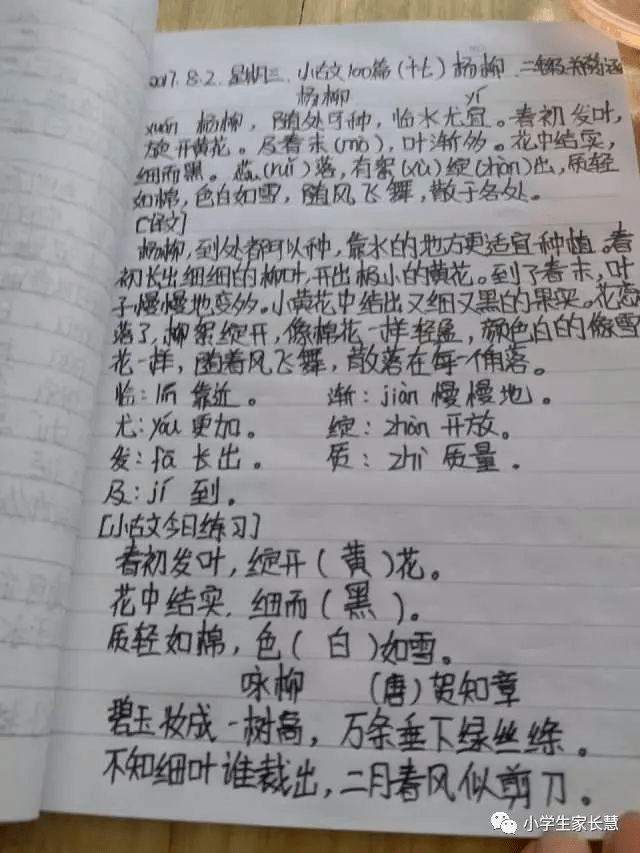 2017.8.2. 星期三. 小古文100篇(十七)杨柳. 二年级
杨柳 yí
xuán 杨柳，随处可种，临水尤宜。春初发叶，
旋开黄花。及春末(mò)，叶渐多。花中结实，
细而黑。蕊(ruǐ)落，有絮(xù)绽(zhàn)出，质轻
如棉，色白如雪，随风飞舞，散于各处。
[译文]
杨柳，到处都可以种，靠水的地方更适宜种植。春
初长出细细的柳叶，开出极小的黄花。到了春末，叶
子慢慢地变多。小黄花中结出又细又黑的果实。花蕊
落了，柳絮绽开，像棉花一样轻盈，颜色白的像雪
花一样，随着风飞舞，散落在每一个角落。
临：lín 靠近。 渐：jiàn 慢慢地。
尤：yóu 更加。 绽：zhàn 开放。
发：fā 长出。 质：zhì 质量.
及：jí 到.
[小古文今日练习]
春初发叶，绽开(黄)花。
花中结实，细而(黑)。
质轻如棉，色(白)如雪。
咏柳 (唐)贺知章
碧玉妆成一树高，万条垂下绿丝绦。
不知细叶谁裁出，二月春风似剪刀。
小学生家长慧